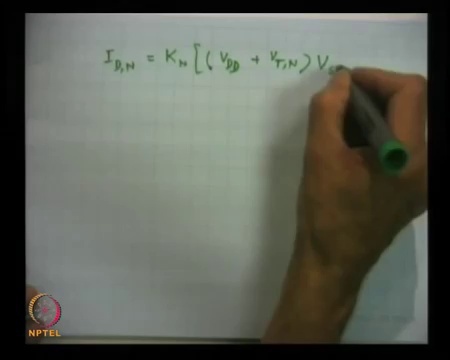 I_{D,N} = K_N [(V_{DD} + V_{T,N}) V
NPTEL